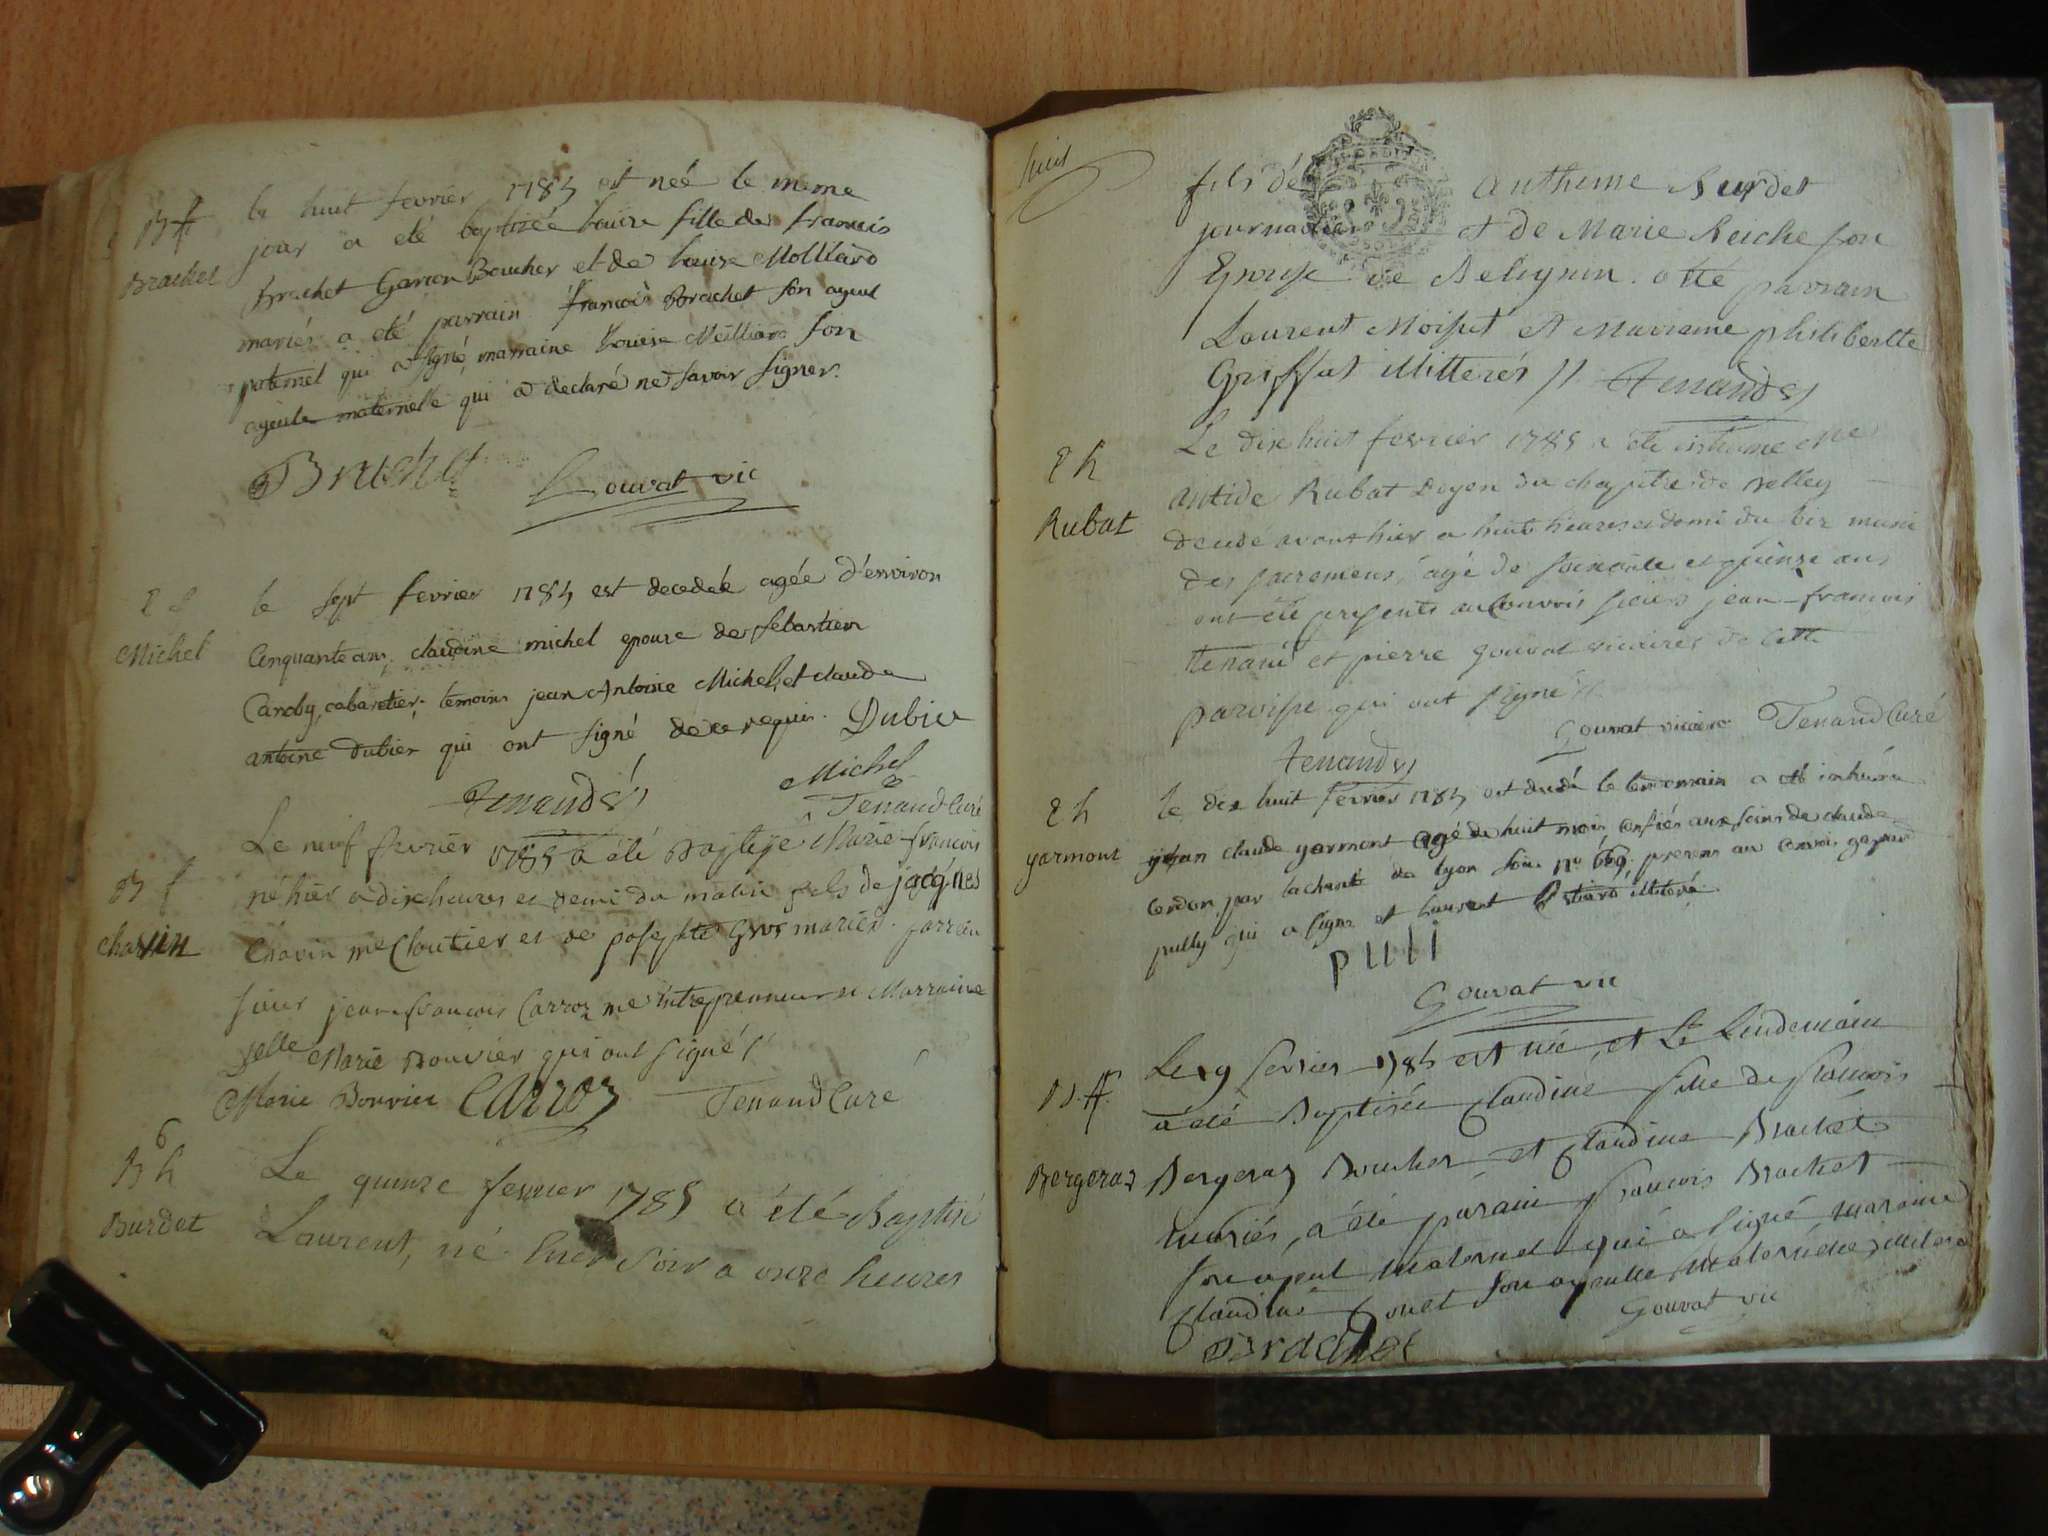 B ff
Brachet
le huit fevrier 1785 est née le meme
jour a été baptisée Louise fille de francois
Brachet Garcon Boucher et de Louise Molliard
mariés a été parrain francois Brachet son ayeul
paternel qui a signé, marraine Louise Meilliard son
ayeule maternelle qui a declaré ne savoir signer.
Brachet Gouvat vic
Michel
le sept fevrier 1785 est decedée agée d'environ
Cinquante ans, claudine michel epouse de sebastien
cabaretier. temoins jean Antoine Michel, et claude
antoine Dubier qui ont signé de ce requis. Dubier
Michel
Tenand Curé
B f
Charvin
Le neuf fevrier 1785 a été Baptisé Marie francois
né hier a dix heures et demi du matin fils de jacques
Chavin me Cloutier et de Josephte Gros mariés. parrain
sieur jean francois Carroz me Entrepreneur et Marraine
delle Marie Bouvier qui ont signé //
Marie Bouvier Carroz Tenand Curé
6
B h
Burdet
Le quinze fevrier 1785 a été Baptisé
Laurent, né hier soir a onze heures
huit
fils dé Antheme Burdet
journalier et de Marie Reiche son
Epouse de Belignin. a été parrain
Laurent Moiset et Marianne philiberte
Griffat illitterés //
E h
Rubat
Le dix huit fevrier 1785 a été inhumé
antide Rubat Doyen du chapitre de Belley
decedé avant hier a huit heures et demi du soir muni
des sacremens, agé de soixante et quinze ans
ont été presents au Convois sieurs jean francois
tenand et pierre gouvat vicaires de cette
paroisse qui ont signé //
Gouvat vicaire Tenand Curé
E h
yarmont
le dix huit fevrier 1785 est decedé le lendemain a été inhumé
jean claude yarmont agé de huit mois confiés aux soins de claude
cordon par la charité de lyon sous no 669. presens au convoi gaspard
pully qui a signé et Laurent illiteré.
pulli
Gouvat vic
B. ff.
Bergeraz
Le 19 fevrier 1785 est née, et Le Lendemain
a été Baptisée Claudine fille de francois
Bergeraz Boucher et Claudine Brachet
mariés, a été parain francois Brachet
son ayeul maternel qui a signé, maraine
Claudine son ayeulle maternelle illiteré
Gouvat vic
Brachet